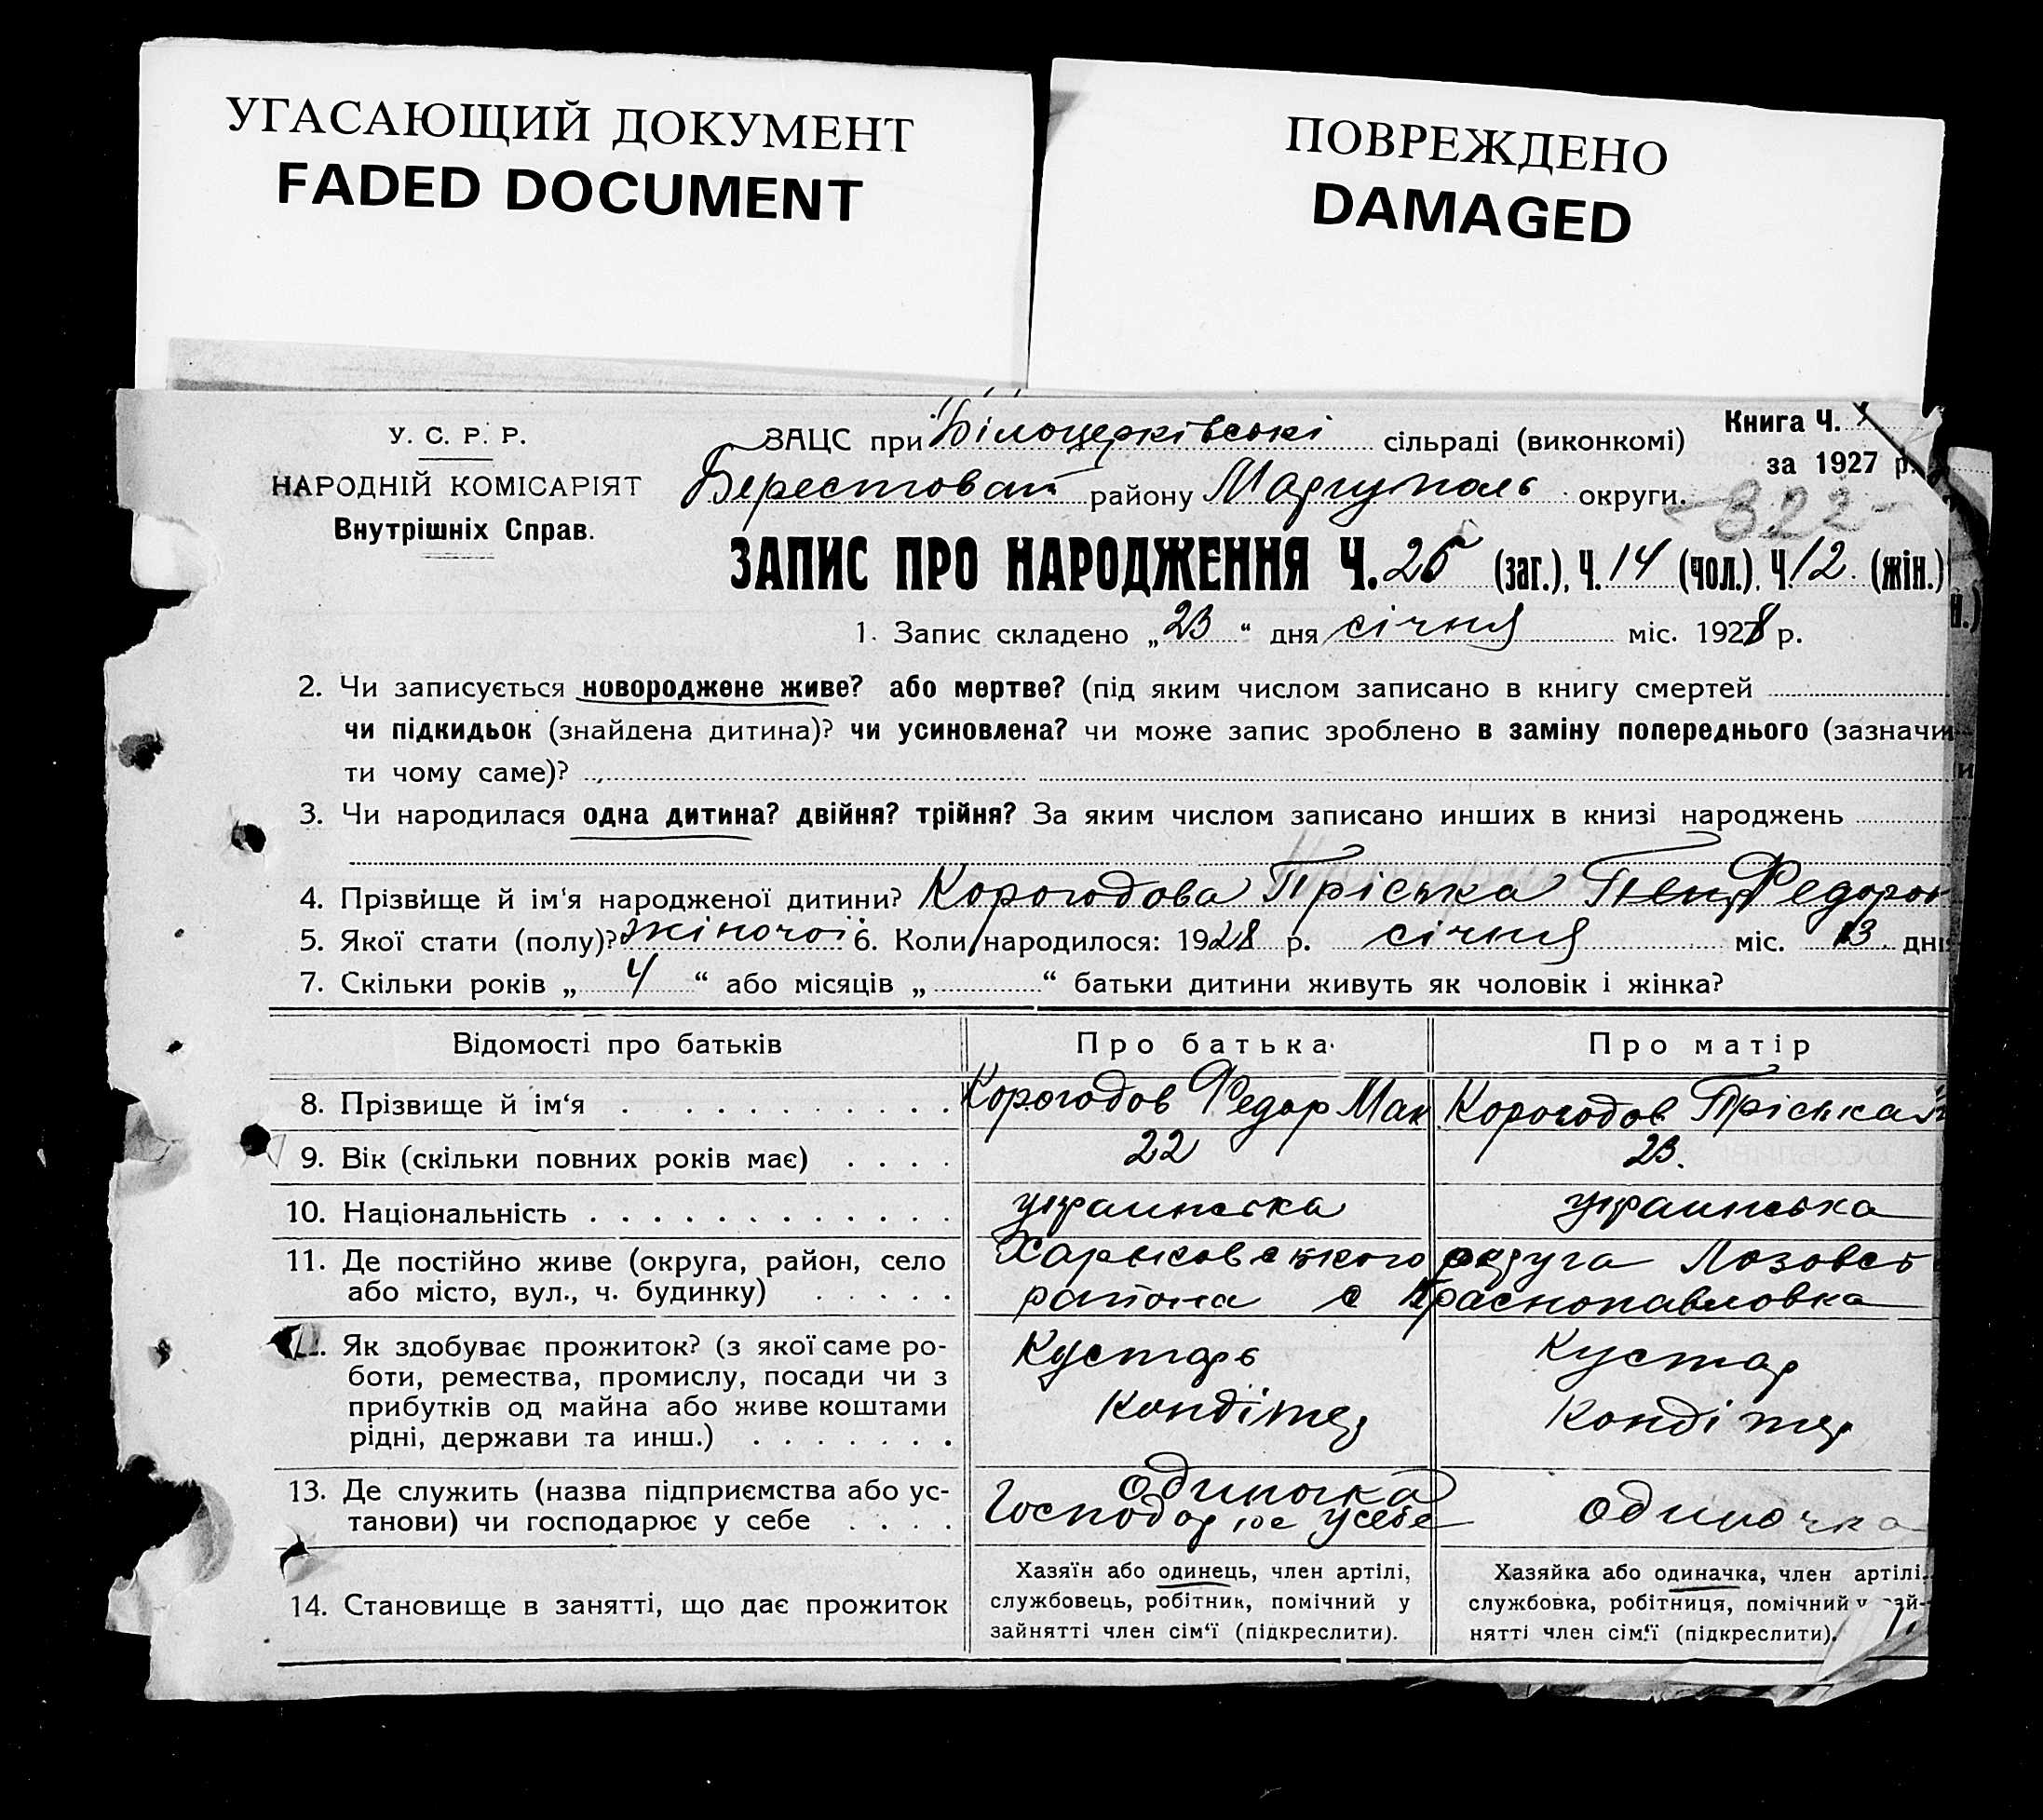 УГАСАЮЩИЙ ДОКУМЕНТ
FADED DOCUMENT
ПОВРЕЖДЕНО
DAMAGED
У. С. Р. Р.
НАРОДНІЙ КОМІСАРІЯТ
Внутрішніх Справ.
ЗАЦС при Білоцерківські сільраді (виконкомі)
Берестовай району Мариуполь округи.
Книга Ч. 1
за 1927 р.
322
ЗАПИС ПРО НАРОДЖЕННЯ Ч. 26 (заг.), Ч. 14 (чол.), Ч. 12. (жін.)
1. Запис складено „23“ дня січня міс. 1928 р.
2. Чи записується новороджене живе? або мертве? (під яким числом записано в книгу смертей
чи підкидьок (знайдена дитина)? чи усиновлена? чи може запис зроблено в заміну попереднього (зазначи-
ти чому саме)?
3. Чи народилася одна дитина? двійня? трійня? За яким числом записано инших в книзі народжень
4. Прізвище й ім‘я народженої дитини? Корогодова Пріська Федоров
5. Якої стати (полу)? жіночої 6. Коли народилося: 1928 р. січня міс. 13 дня
7. Скільки років „4“ або місяців „ “ батьки дитини живуть як чоловік і жінка?
Відомості про батьків Про батька Про матір
8. Прізвище й ім‘я Корогодов Федор Мак Корогодов Пріська
9. Вік (скільки повних років має) 22 23.
10. Національність украинська украинська
11. Де постійно живе (округа, район, село Харьковського округа Лозовсь
або місто, вул., ч. будинку) района с Краснопавловка
Як здобуває прожиток? (з якої саме ро- Кустарь Кустар
боти, ремества, промислу, посади чи з
прибутків од майна або живе коштами Кондітер Кондітер
рідні, держави та инш.)
13. Де служить (назва підприємства або ус- одиночка одиночка
танови) чи господарює у себе Господарює у себе
14. Становище в занятті, що дає прожиток
Хазяїн або одинець, член артілі,
службовець, робітник, помічний у
зайнятті член сім‘ї (підкреслити).
Хазяйка або одиначка, член артілі,
службовка, робітниця, помічний у зай-
нятті член сім‘ї (підкреслити).